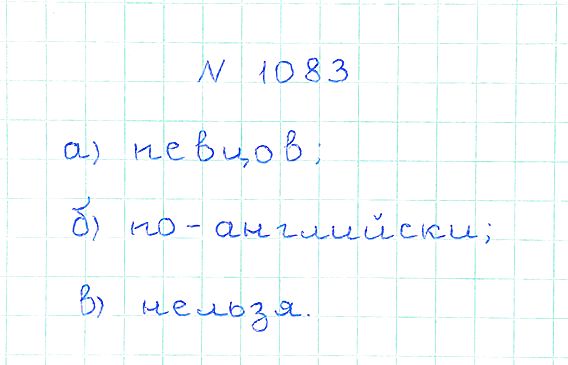 N 1083
а) певцов;
б) по-английски;
в) нельзя.